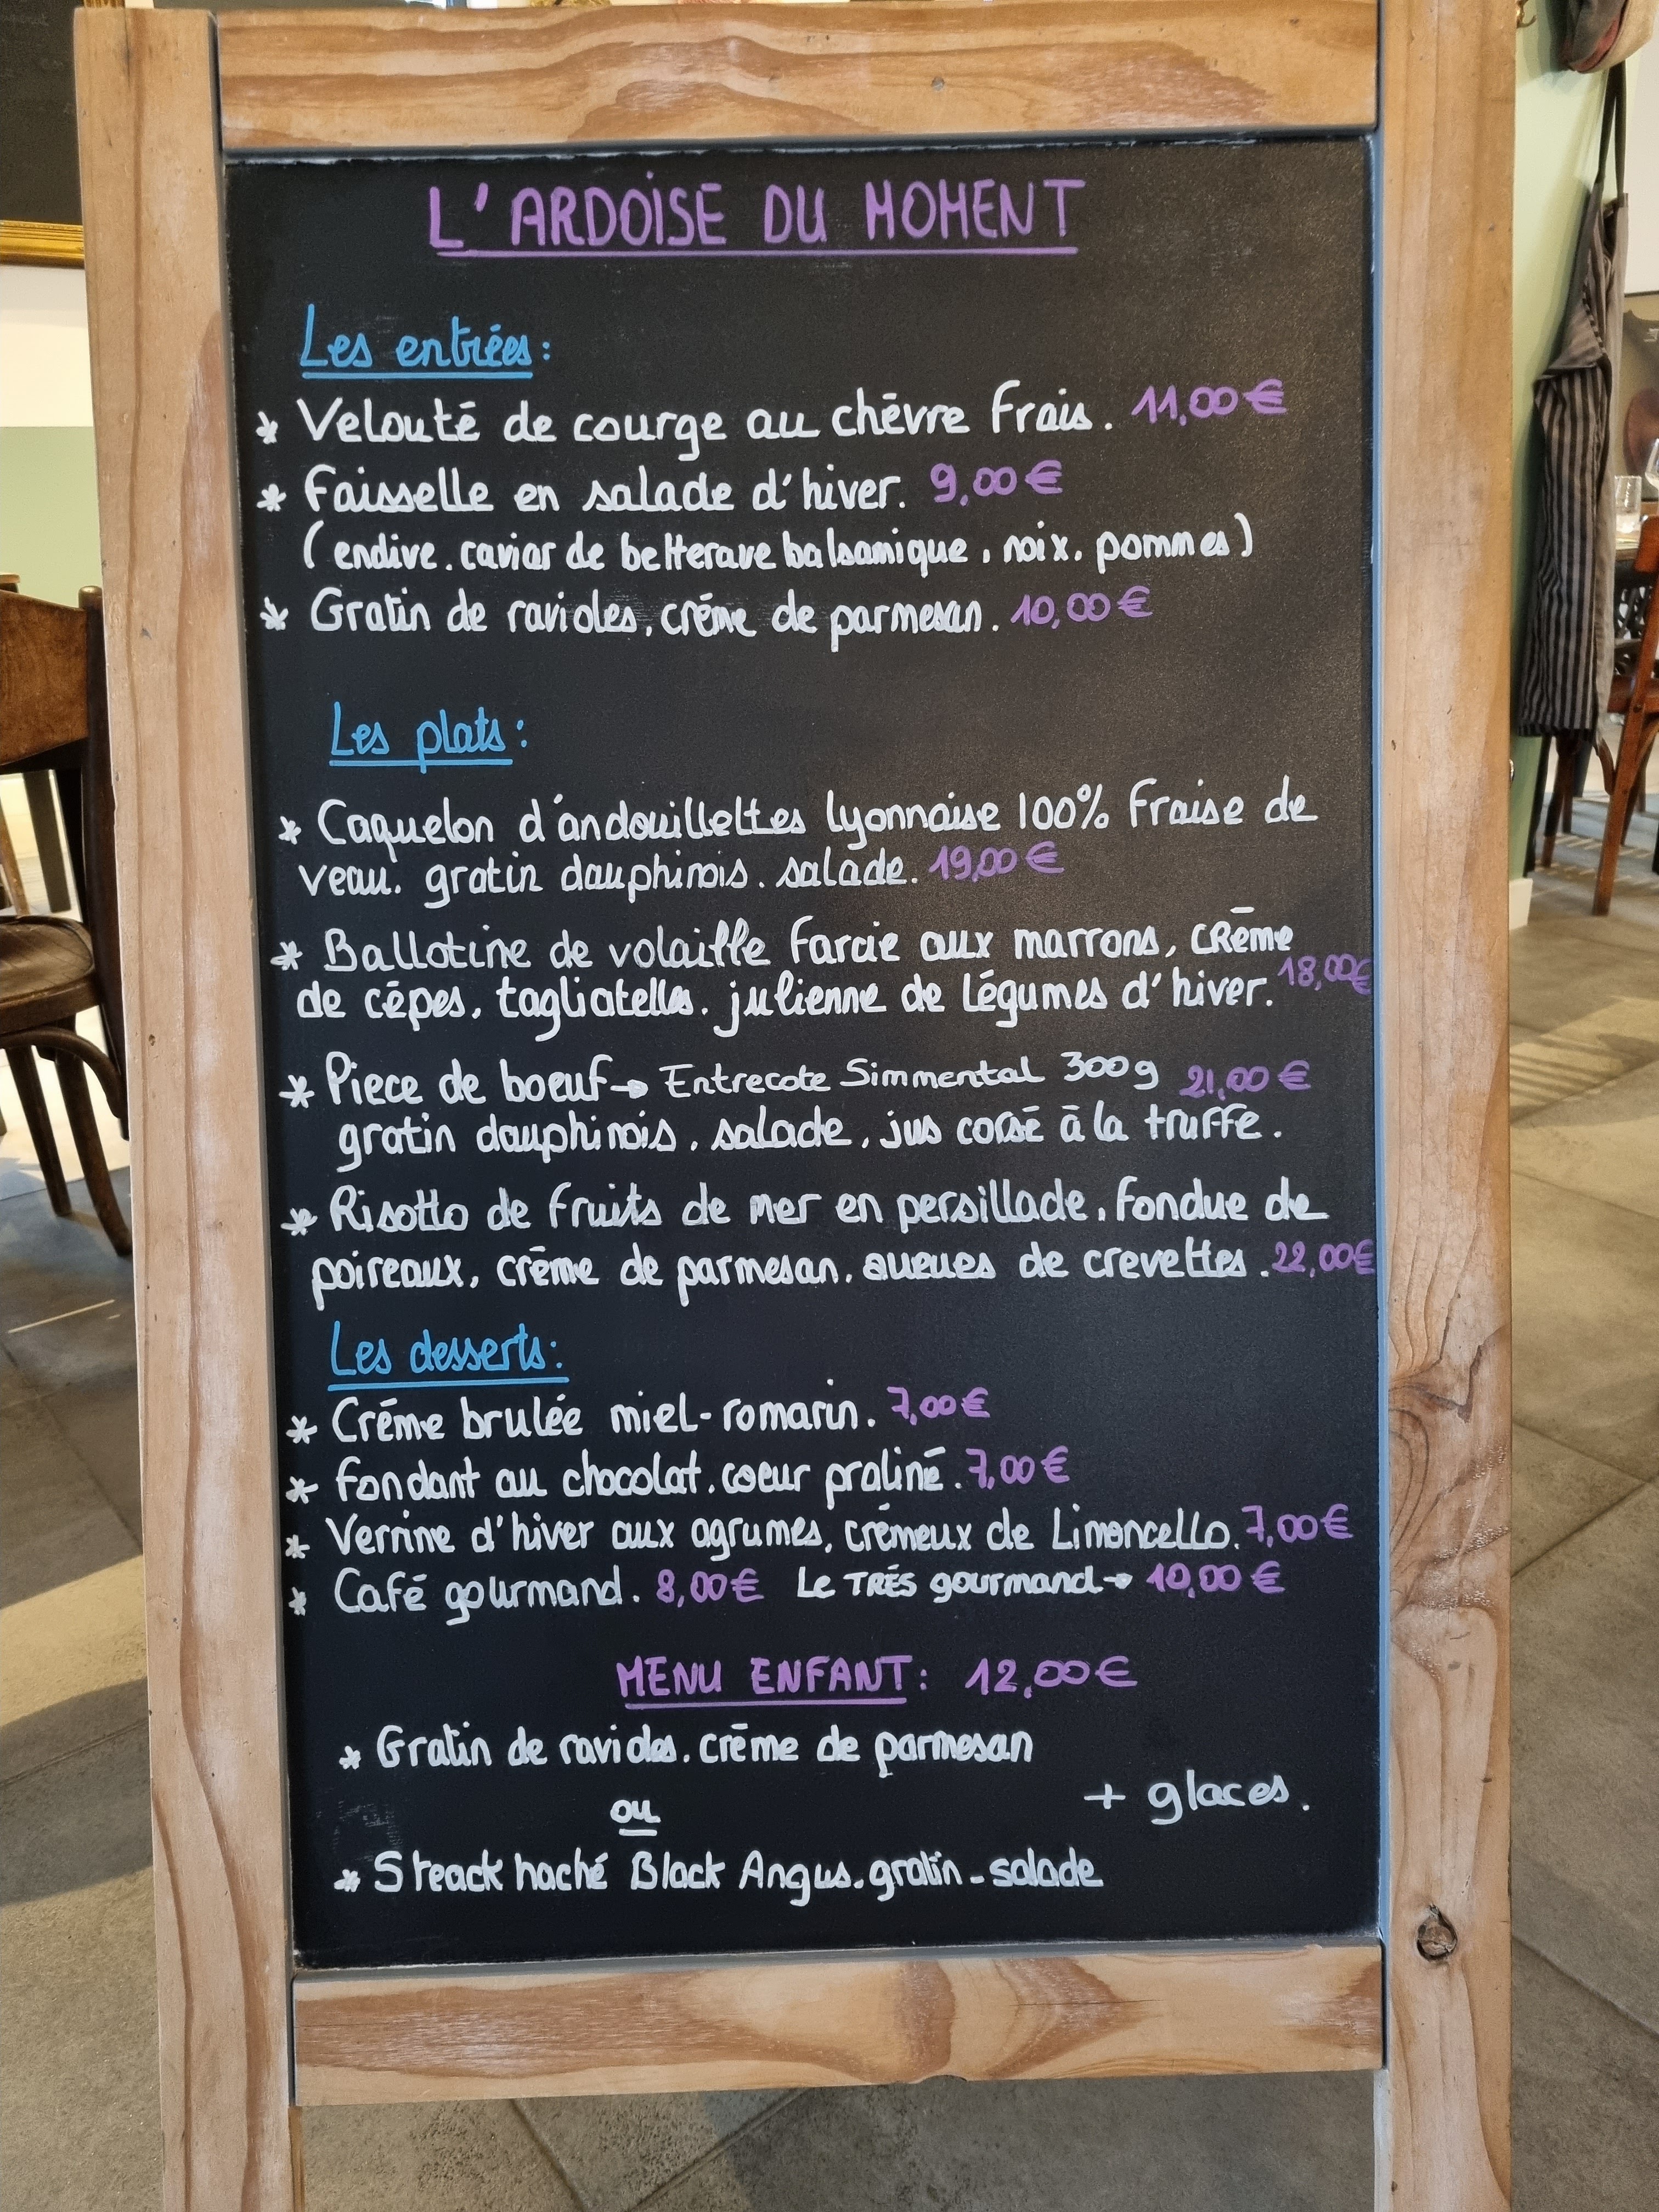 L'ARDOISE DU MOMENT
Les entrées :
* Velouté de courge au chèvre frais. 11,00€
* Faisselle en salade d'hiver. 9,00€
(endive. caviar de betterave balsamique, noix. pommes)
* Gratin de ravioles, crème de parmesan. 10,00€
Les plats :
* Caquelon d'andouillettes lyonnaise 100% fraise de
veau. gratin dauphinois. salade. 19,00€
* Ballotine de volaille farcie aux marrons, crème
de cèpes, tagliatelles. julienne de légumes d'hiver. 18,00€
* Piece de boeuf → Entrecote Simmental 300g 21,00€
gratin dauphinois, salade, jus corsé à la truffe.
* Risotto de fruits de mer en persillade, fondue de
poireaux, crème de parmesan, queues de crevettes. 22,00€
Les desserts :
* Crème brulée miel-romarin. 7,00€
* Fondant au chocolat, coeur praliné. 7,00€
* Verrine d'hiver aux agrumes, crémeux de Limoncello. 7,00€
* Café gourmand. 8,00€ Le TRÈS gourmand → 10,00€
MENU ENFANT : 12,00€
* Gratin de ravioles. crème de parmesan
+ glaces.
ou
* Steack haché Black Angus. gratin - salade